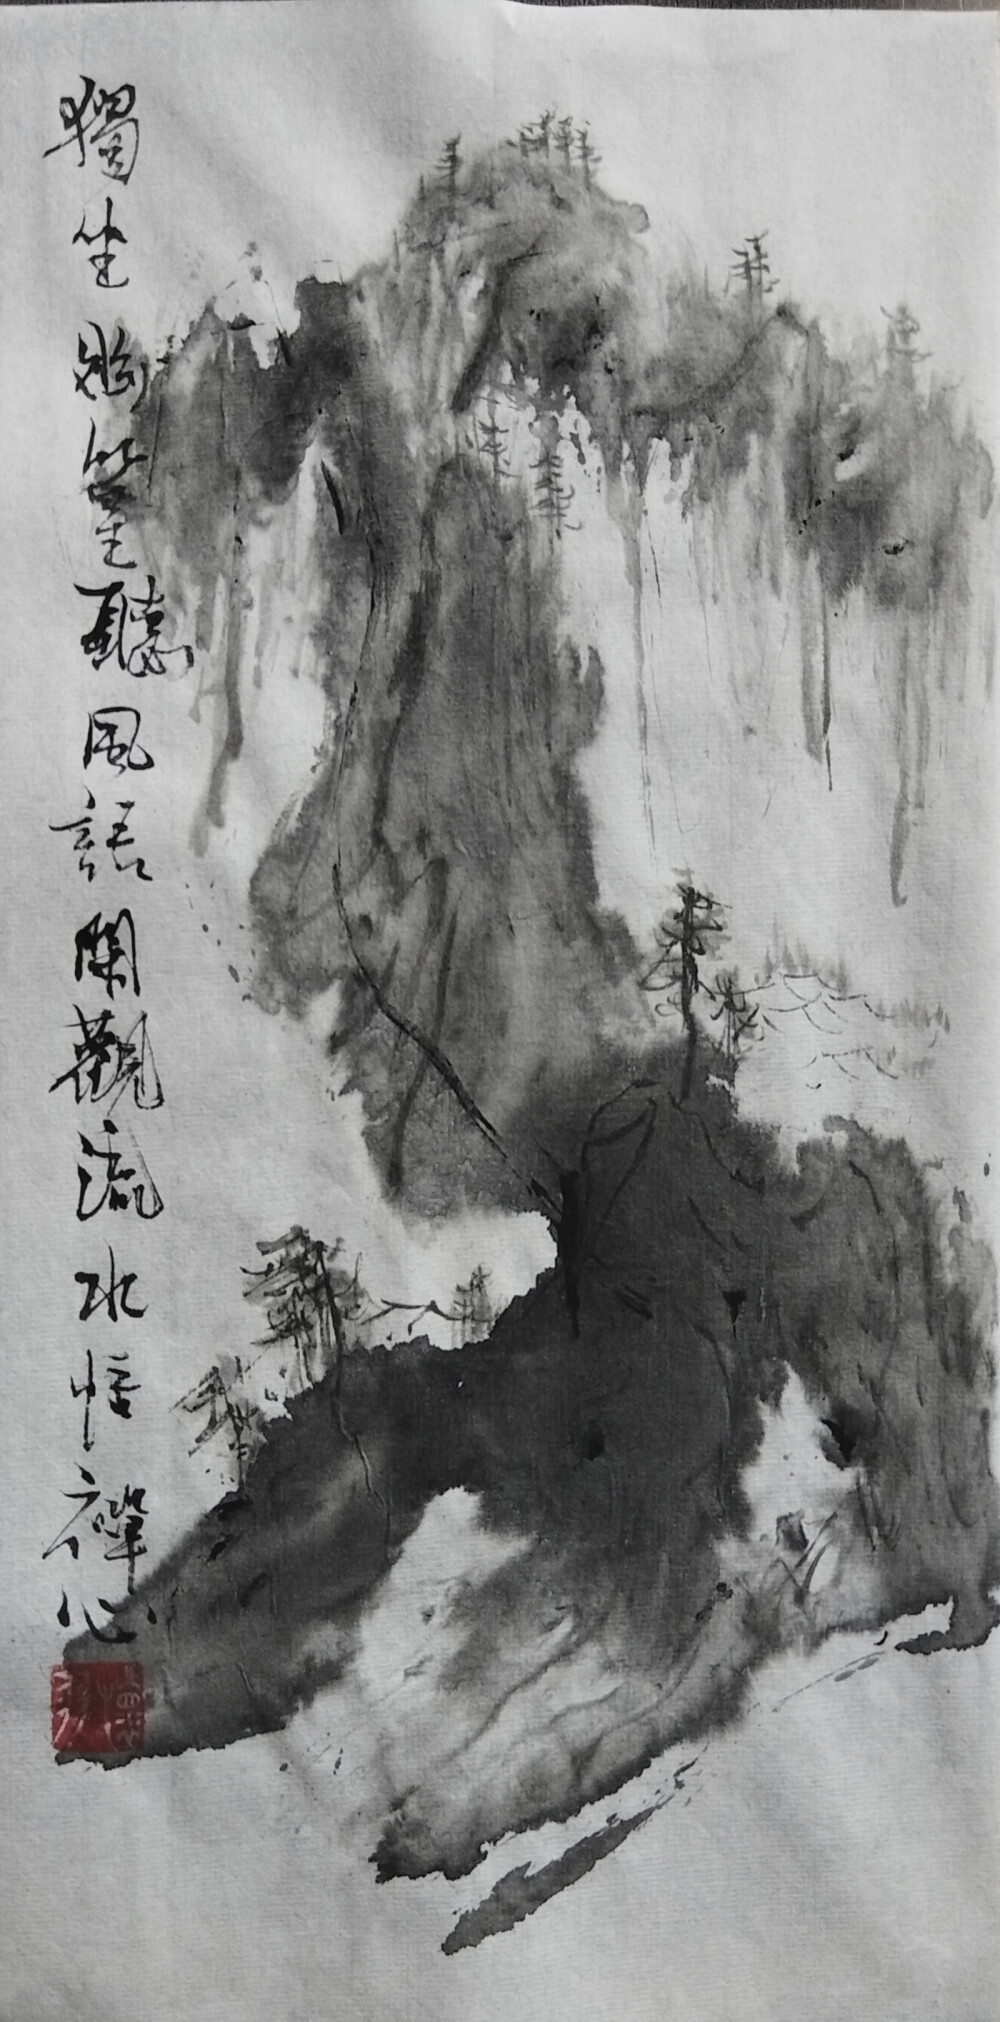 獨坐幽篁聽風語閑觀流水悟禪心